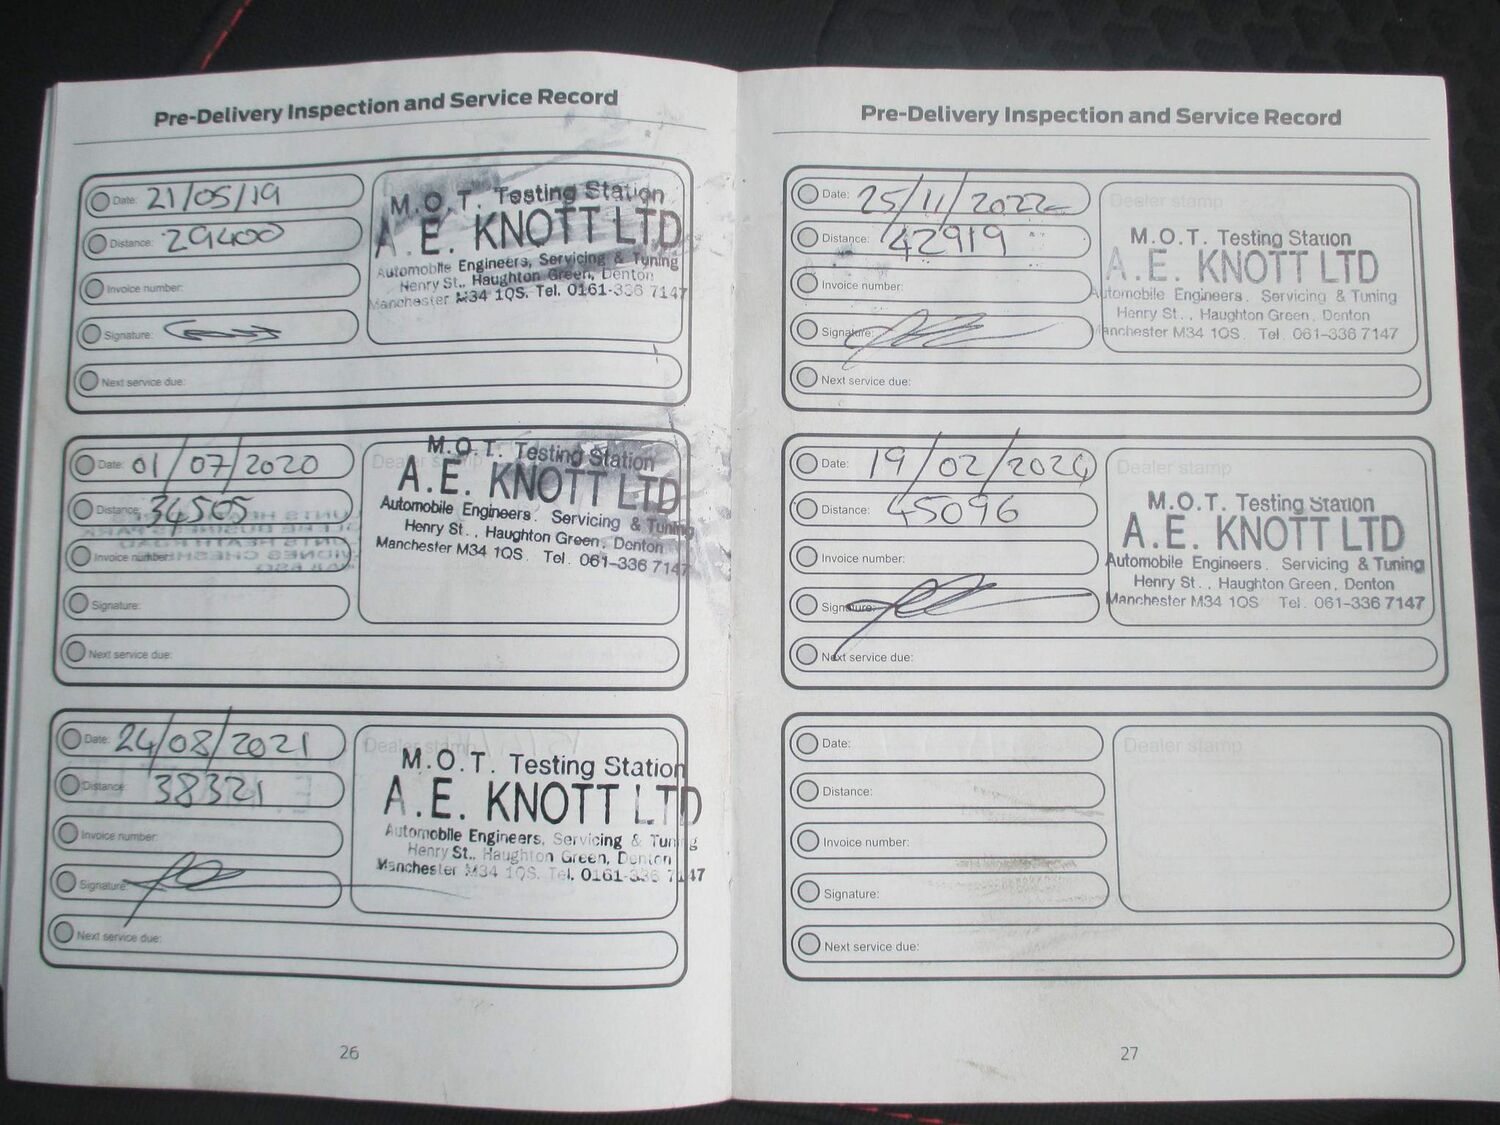 Pre-Delivery Inspection and Service Record
Date: 21/05/19
Distance: 29400
Invoice number:
Signature:
Next service due:
M.O.T. Testing Station
A.E. KNOTT LTD
Automobile Engineers, Servicing & Tuning
Henry St., Haughton Green, Denton
Manchester M34 1QS. Tel. 0161-336 7147
Date: 01/07/2020
Distance: 34505
Invoice number:
Signature:
Next service due:
Dealer stamp
M.O.T. Testing Station
A.E. KNOTT LTD
Automobile Engineers. Servicing & Tuning
Henry St., Haughton Green, Denton
Manchester M34 1QS Tel. 061-336 7147
Date: 24/08/2021
Distance: 38321
Invoice number:
Signature:
Next service due:
Dealer stamp
M.O.T. Testing Station
A.E. KNOTT LTD
Automobile Engineers, Servicing & Tuning
Henry St., Haughton Green, Denton
Manchester M34 1QS. Tel. 0161-336 7147
26
Pre-Delivery Inspection and Service Record
Date: 25/11/2022
Distance: 42919
Invoice number:
Signature:
Next service due:
Dealer stamp
M.O.T. Testing Station
A.E. KNOTT LTD
Automobile Engineers. Servicing & Tuning
Henry St., Haughton Green, Denton
Manchester M34 1QS. Tel. 061-336 7147
Date: 19/02/2024
Distance: 45096
Invoice number:
Signature:
Next service due:
Dealer stamp
M.O.T. Testing Station
A.E. KNOTT LTD
Automobile Engineers. Servicing & Tuning
Henry St., Haughton Green, Denton
Manchester M34 1QS Tel. 061-336 7147
Date:
Distance:
Invoice number:
Signature:
Next service due:
Dealer stamp
27